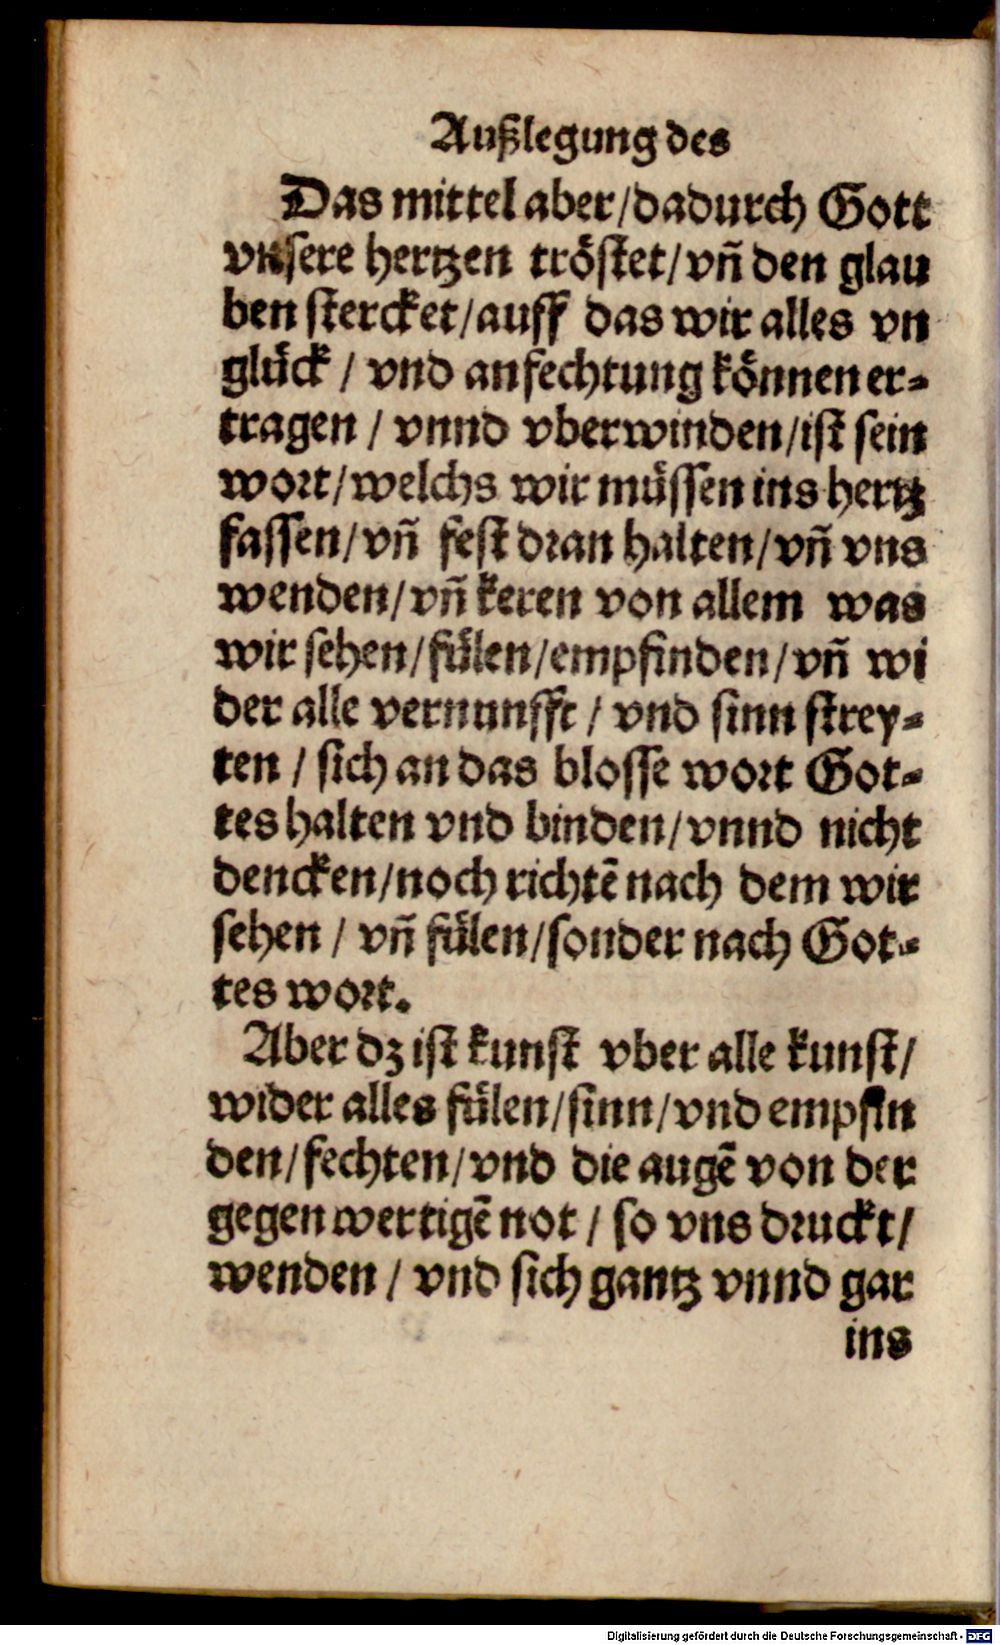 Außlegung des
Das mittel aber/dadurch Gott
vnsere hertzen tröstet/vñ den glau
ben stercket/auff das wir alles vn
glück / vnd anfechtung können er-
tragen / vnnd vberwinden/ist sein
wort/welchs wir müssen ins hertz
fassen/vñ fest dran halten/vñ vns
wenden/vñ keren von allem was
wir sehen/fülen/empfinden/vñ wi
der alle vernunfft / vnd sinn strey-
ten / sich an das blosse wort Got-
tes halten vnd binden/vnnd nicht
dencken/noch richtē nach dem wir
sehen / vñ fülen/sonder nach Got-
tes wort.
Aber dz ist kunst vber alle kunst/
wider alles fülen/sinn/vnd empfin
den/fechten/vnd die augē von der
gegenwertigē not / so vns druckt/
wenden / vnd sich gantz vnnd gar
ins
Digitalisierung gefördert durch die Deutsche Forschungsgemeinschaft - DFG